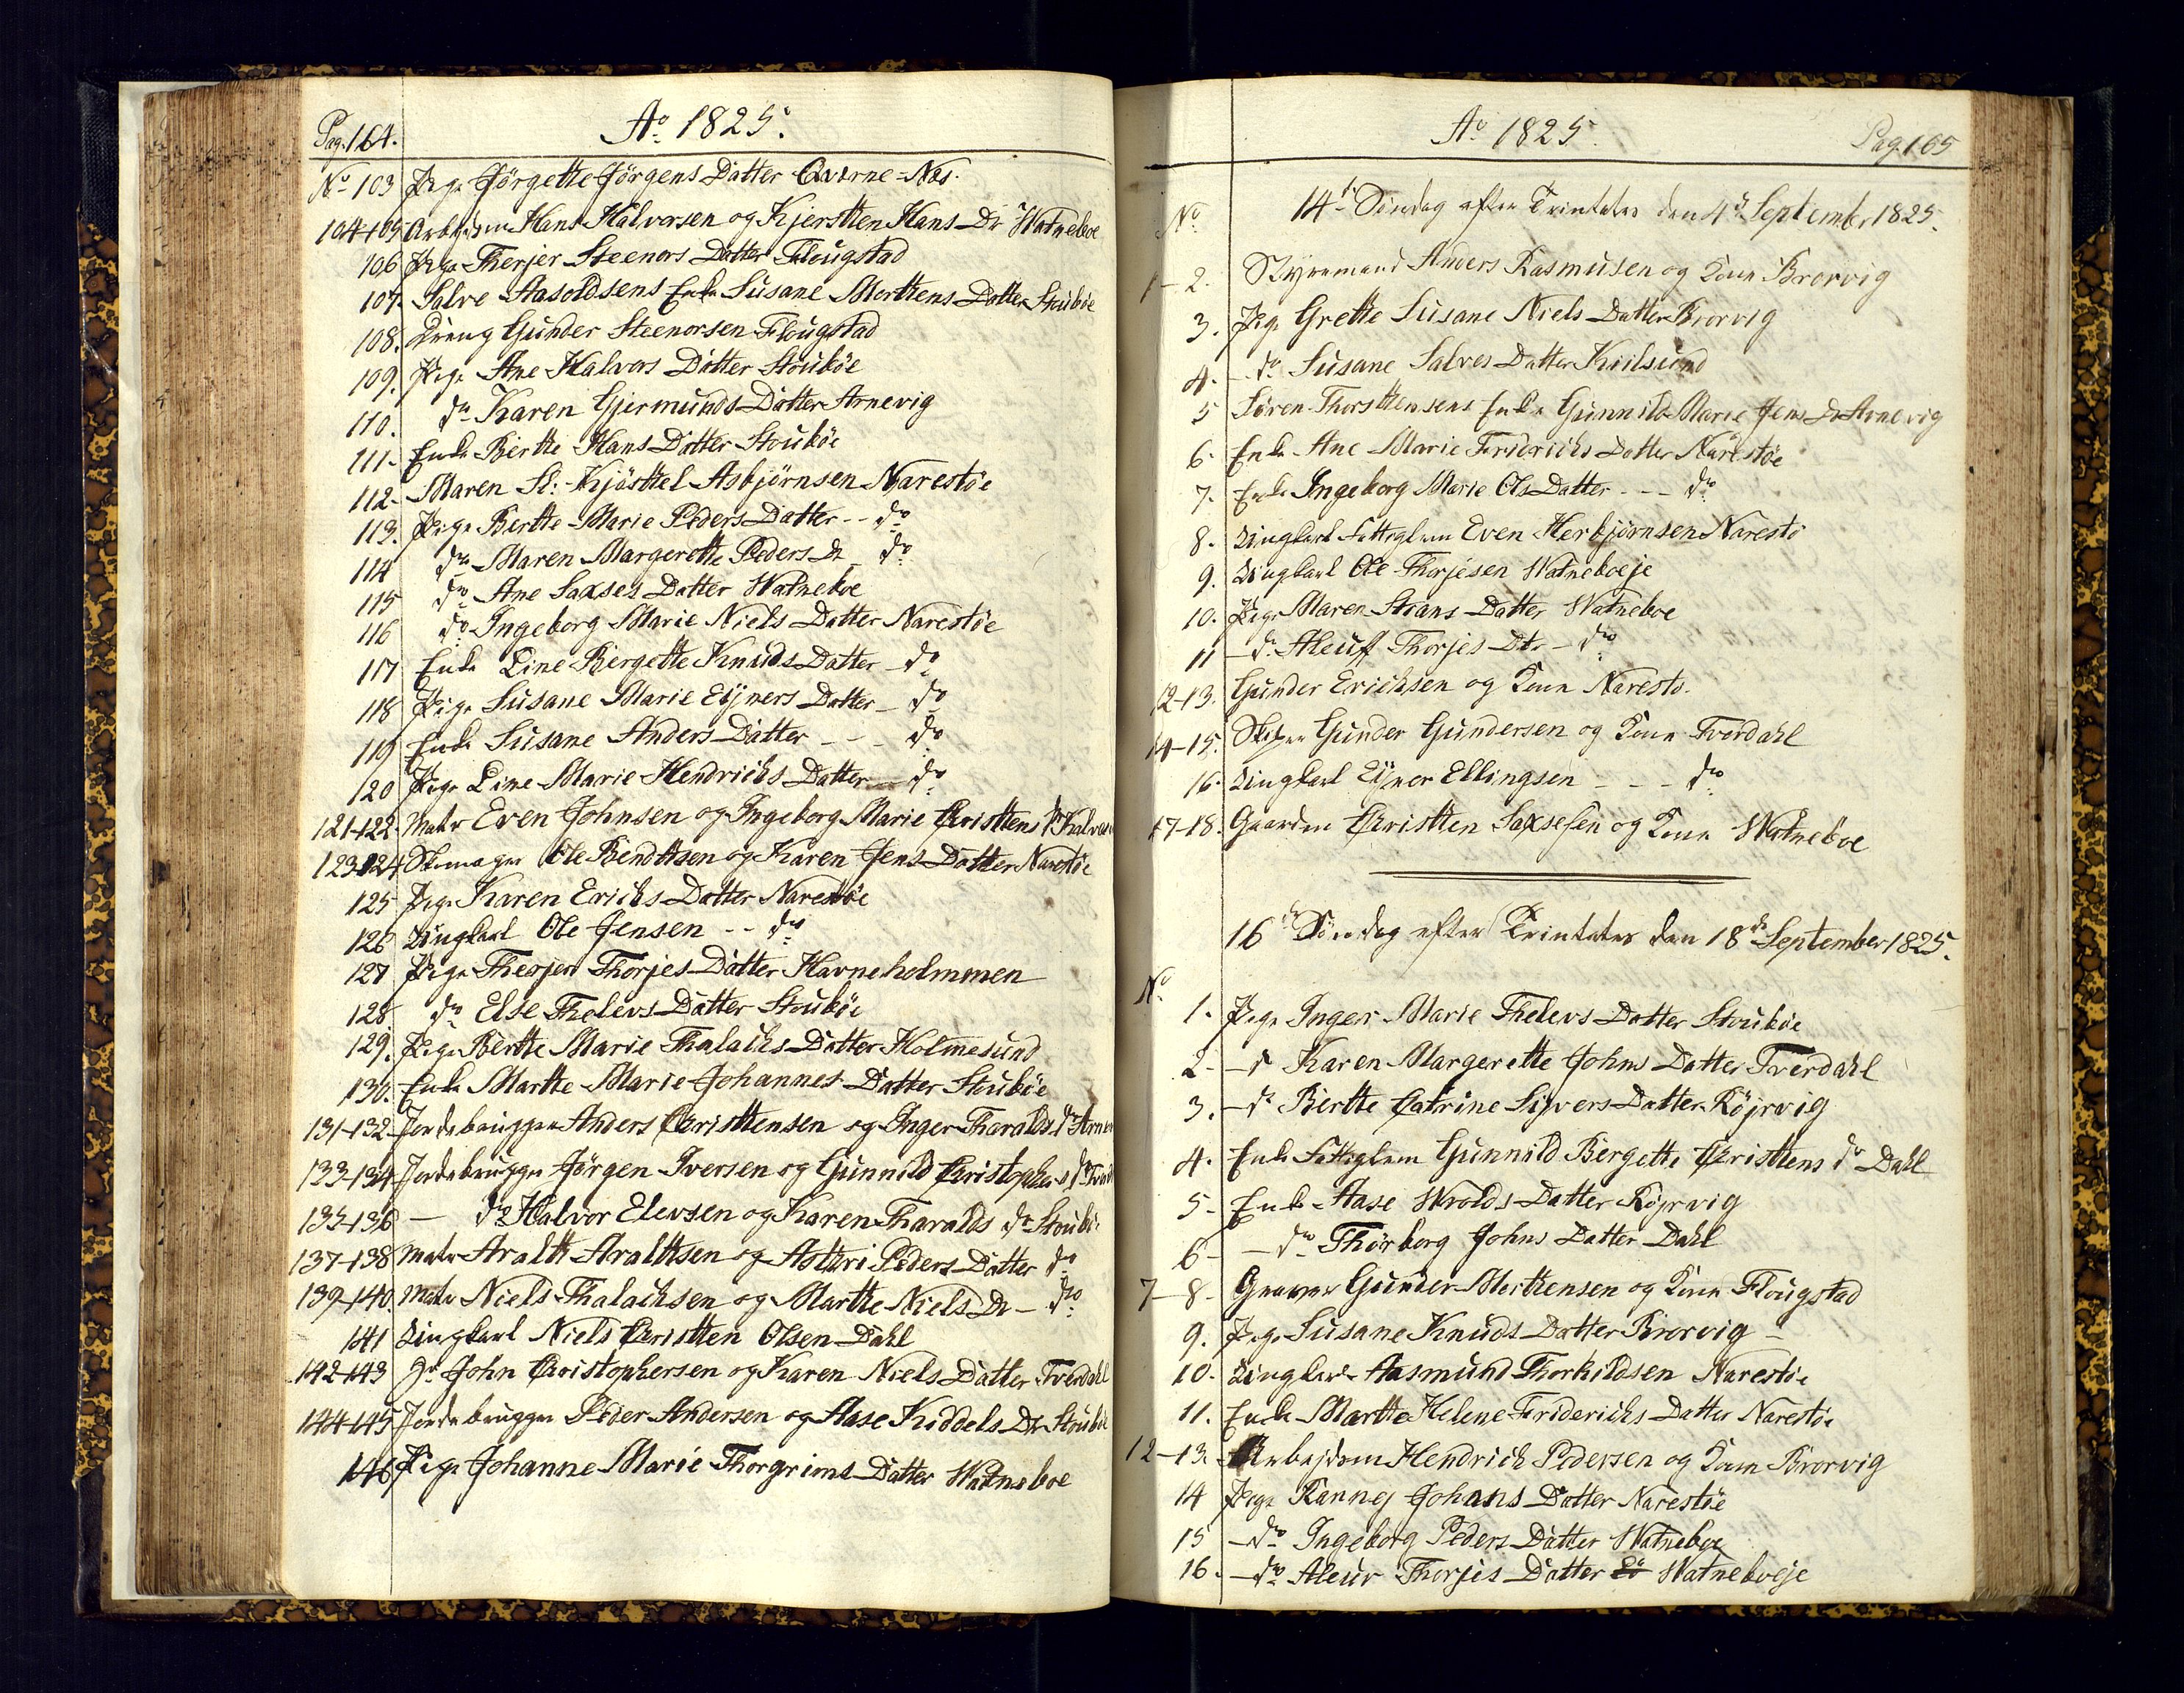 Pag. 164.
Ao 1825.
No 103 Pige Jörgette Jörgens Datter Qverne-Næs.
104-105 Arbejdsm Hans Halvorsen og Kjerstten Hans Dr Watneboe
106 Pige Therjer Steenors Datter Flougstad
107 Salve Aasoldsens Enke Susane Morttens Datter Stouböe
108. Dreng Gunder Steenorsen Flougstad
109. Pige Ane Halvors Datter Stouböe
110. do Karen Gjermunds Datter Arnevig
111- Enke Bertte Hans Datter Stouböe
112- Maren Sl: Kjösttel Asbjörnsen Narestöe
113. Pige Bertte Marie Peders Datter -- do
114 do Maren Margerette Peders Dr do
115 do Ane Saxses Datter Watneboe
116 do Ingeborg Marie Niels Datter Narestöe
117 Enke Line Bergette Knuds Datter - do
118 Pige Susane Marie Eÿners Datter - do
119 Enke Susane Anders Datter - - - do
120 Pige Line Marie Hendrichs Datter do
121-122. Matr Even Johnsen og Ingeborg Marie Christtens Dr
123-124 Skomager Ole Bendttsen og Karen Jens Datter Narestöe
125 Pige Karen Erichs Datter Narestöe
126 Ungkarl Ole Jensen -- do
127 Pige Therjer Thorjes Datter Havneholmmen
128 do Else Thelevs Datter Stouböe
129. Pige Bertte Marie Thalachs Datter Holmesund
130. Enke Martte Marie Johannes Datter Stouböe
131-132 Jordebrugger Anders Christtensen og Inger Tharalds Dr
133-134 Jordebrugger Jörgen Iversen og Gunnild Christophers Dr
135-136 — do Halvor Elevsen og Karen Tharalds Dr Stouböe
137-138 Matr Araltt Aralttsen og Astkri Peders Datter do
139-140. Matr Niels Thalachsen og Martte Niels Dr - do
141 Ungkarl Niels Christten Olsen Dahl
142-143 Gr John Christophersen og Karen Niels Datter Tverdahl
144-145 Jordebrugger Peder Andersen og Aase Kiddels Dr Stouböe
146 Pige Johanne Marie Thorgrims Datter Watneboe
Ao 1825.
Pag. 165
14de Söndag efter Trinitatis den 4de September 1825.
No
1-2. Styremand Anders Rasmusen og Kone Brorvig
3. Pige Grette Susane Niels Datter Brorvig
4. - do Susane Salves Datter Kiilsund
5 Sören Thorsttensens Enke Gunnild Marie Jens Dr Arnevig
6. Enke Ane Marie Friderichs Datter Narestöe
7. Enke Ingeborg Marie Ols Datter - - - do
8. Ungkarl Fattiglem Even Herbjörnsen Narestö
9. Ungkarl Ole Thorjesen Watneboeje
10. Pige Maren Stians Datter Watneboe
11 - do Aleuf Thorjes Dtr - do
12-13. Gunder Erichsen og Kone Naresto.
14-15. Skiper Gunder Gundersen og Kone Tverdahl
16. Ungkarl Eÿner Ellingsen - - - do
17-18. Gaardm Christten Saxsesen og Kone Watneboe
16de Söndag efter Trinitatis den 18de September 1825.
No
1. Pige Inger Marie Thelevs Datter Stouböe
2- - do Karen Margerette Johns Datter Tverdahl
3. - do Bertte Catrine Sÿvers Datter Röjrvig
4. Enke Fattiglem Gunnild Bergette Christtens Dr Dahl
5- Enke Aase Wrolds Datter Röjrvig
6- - do Thörborg Johns Datter Dahl
7-8- Graver Gunder Morttensen og Kone Flougstad
9. Pige Susane Knuds Datter Brorvig -
10. Ungkarl Aasmund Thorkildsen Narestöe
11. Enke Martte Helene Friderichs Datter Narestöe
12-13. Arbejdsm Hendrich Pedersen og Kone Brorvig
14 Pige Rannej Johans Datter Narestöe
15 - do Ingeborg Peders Datter Watneboe
16. - do Aleur Thorjes Datter do Watneboeje